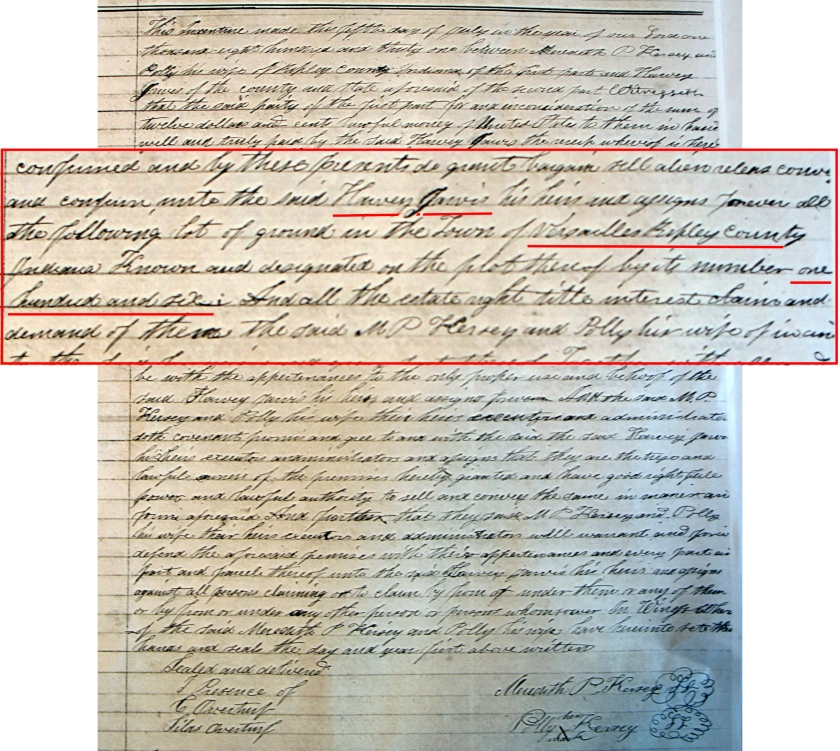 This Indenture made the fifth day of July in the year of our Lord one
thousand eight hundred and thirty one between Meredith P Kersey and
Polly his wife of Ripley County Indiana of the first part and Harvey
Jarvis of the county and State aforesaid of the second part Witnesseth
that the said party of the first part for and in consideration of the sum of
twelve dollars and cent lawful money of United States to them in hand
well and truly paid by the said Harvey Jarvis the receip whereof is here
confirmed and by these presents do grant bargain sell alien releas conve
and confirm unto the said Harvey Jarvis his heirs and assigns forever all
the following lot of ground in the Town of Versailles Ripley County
Indiana Known and designated on the plot thereof by its number one
hundred and six : And all the estate right title interest claim and
demand of them the said M P Kersey and Polly his wife of in an
be with the appertenances to the only proper use and behoof of the
said Harvey Jarvis his heirs and assigns forever And the said M. P.
Kersey and Polly his wife their heirs executors and administrator
doth covenant promis and gree to and with the said the said Harvey Jarvis
his heirs executor and administrators and assigns that they are the true and
lawful owners of the premises hereby granted and have good right full
power and lawful authority to sell and convey the same in maner an
form aforesaid And further that they said M P Kersey and Polly
his wife thar heirs executors and administrators will warrant and forever
defend the aforesaid premises with their appertenances and every part an
part and parcele thereof unto the said Harvey Jarvis his heirs and assigns
against all persons claiming or to claim by from of under them or any of them
or by from or under any other person or persons whomsoever In Witness Wher
of the said Meredith P Kersey and Polly his wife have hereunto set the
hands and seals the day and year first above written
Sealed and delivered
I Presence of
C Overturf
Silas Overturf
Meredith P. Kersey
Polly her Kersey
mark